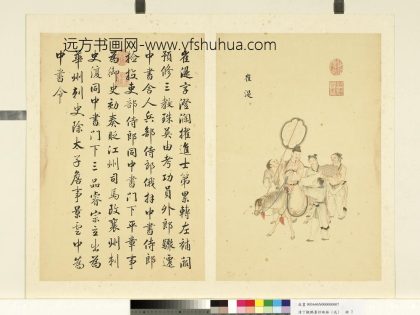 远方书画网-www.yfshuhua.com
崔湜字澄瀾擢進士第累轉左補闕
預修三教珠英由考功員外郎驟遷
中書舍人兵部侍郎俄拜中書侍郎
檢校吏部侍郎同中書門下平章事
為御史劾奏貶江州司馬改襄州刺
史復同中書門下三品睿宗立出為
華州刺史除太子詹事景雲中為
中書令
崔湜